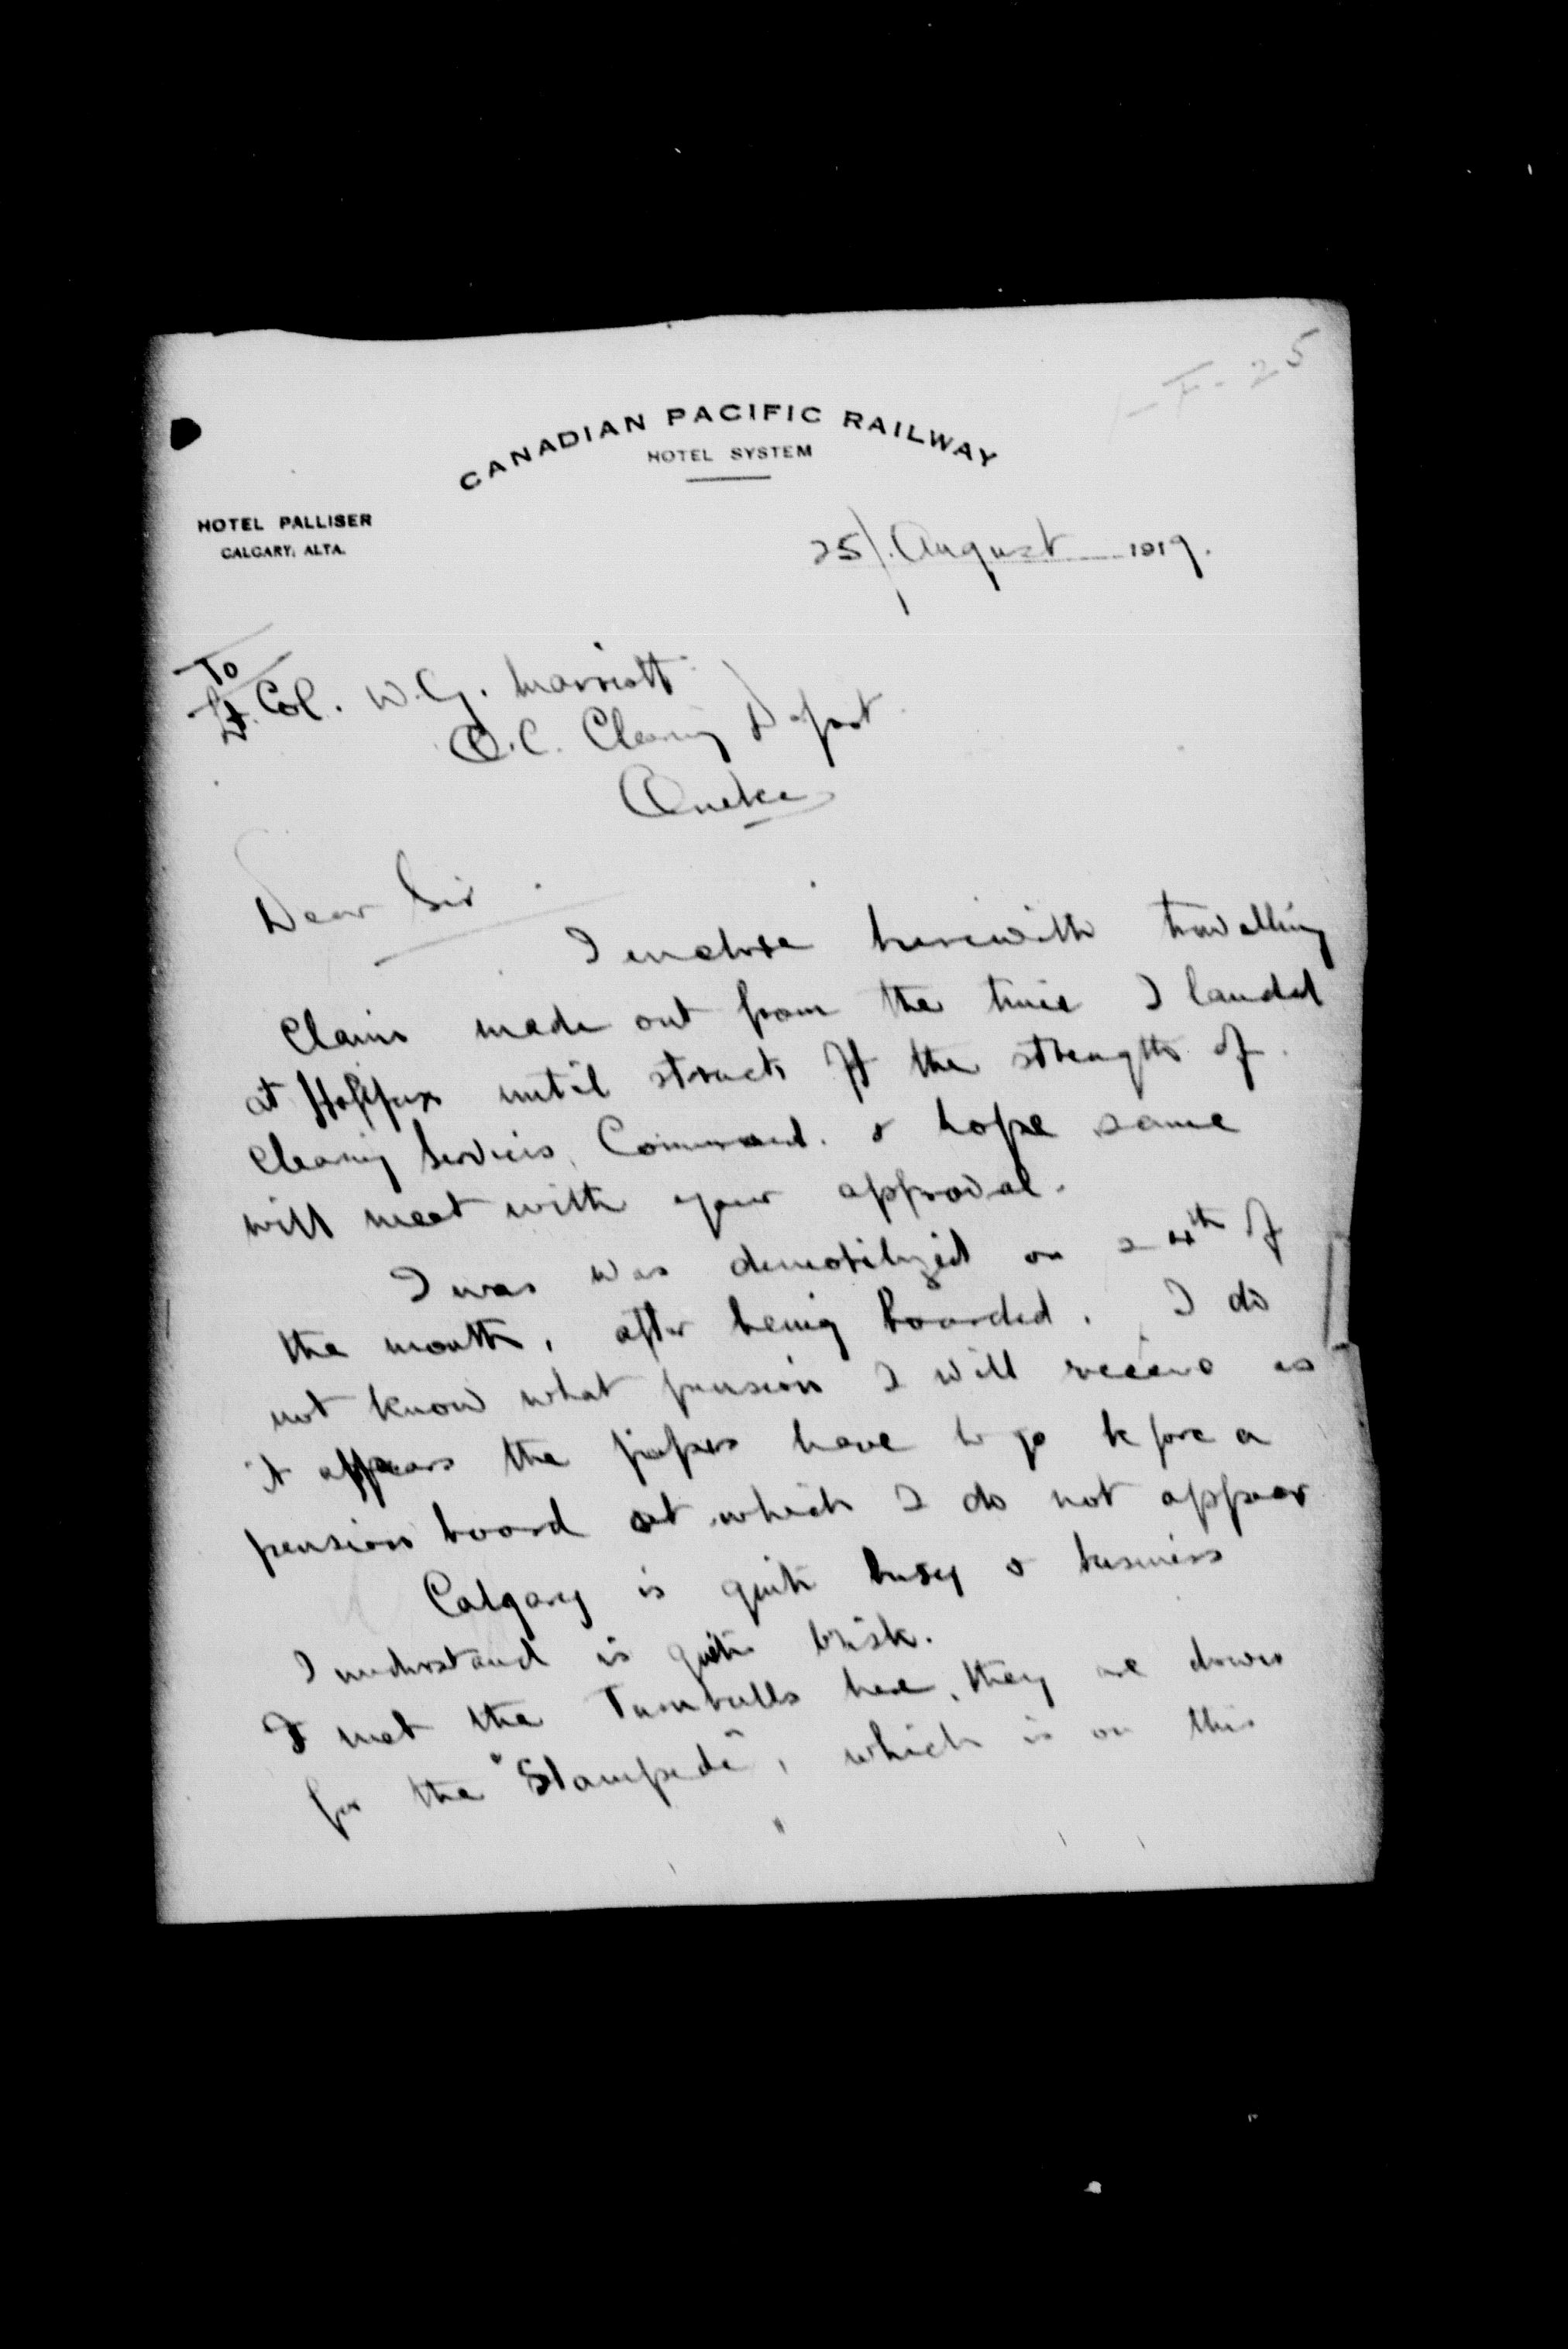 1-F-25
CANADIAN PACIFIC RAILWAY
HOTEL SYSTEM
HOTEL PALLISER
CALGARY, ALTA.
25/. August 1919.
To
Lt. Col. W. G. Marriott
O.C. Clearing Depot
Quebec
Dear Sir
I enclose herewith travelling
Claim made out from the time I landed
at Halifax until struck off the strength of
Clearing Services Command. & hope same
will meet with your approval.
I was was demobilized on 24th of
the month, after being boarded. I do
not know what pension I will receive as
it appears the papers have to go before a
pension board at which I do not appear
Calgary is quite busy & business
I understand is quite brisk.
I met the Turnbulls here, they are down
for the "Stampede", which is on this